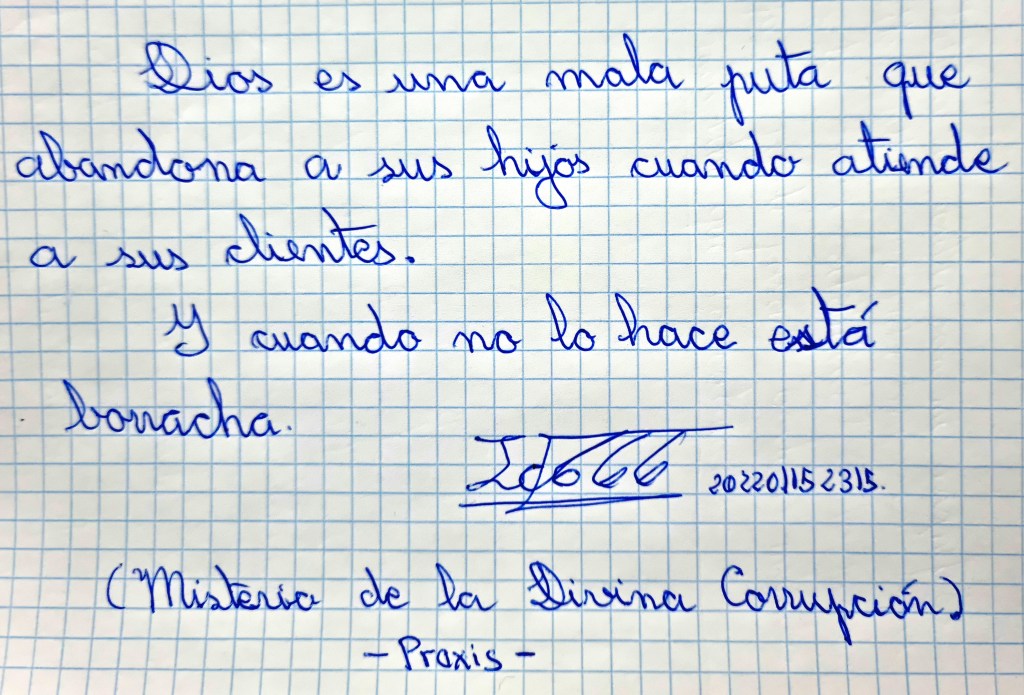 Dios es una mala puta que
abandona a sus hijos cuando atiende
a sus clientes.
Y cuando no lo hace está
borracha.
202201152315.
(Misterio de la Divina Corrupción)
- Praxis -